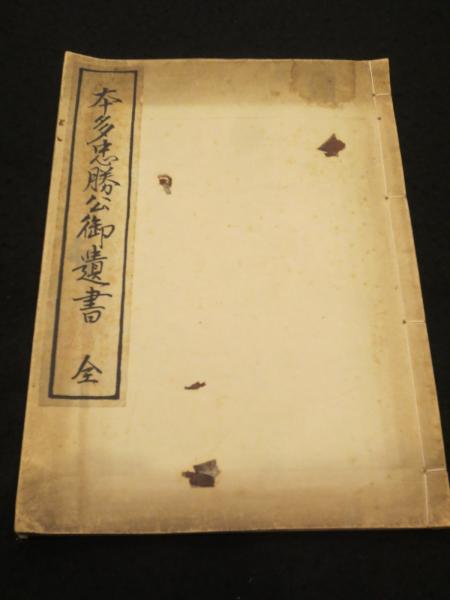 本多忠勝公御遺書 全